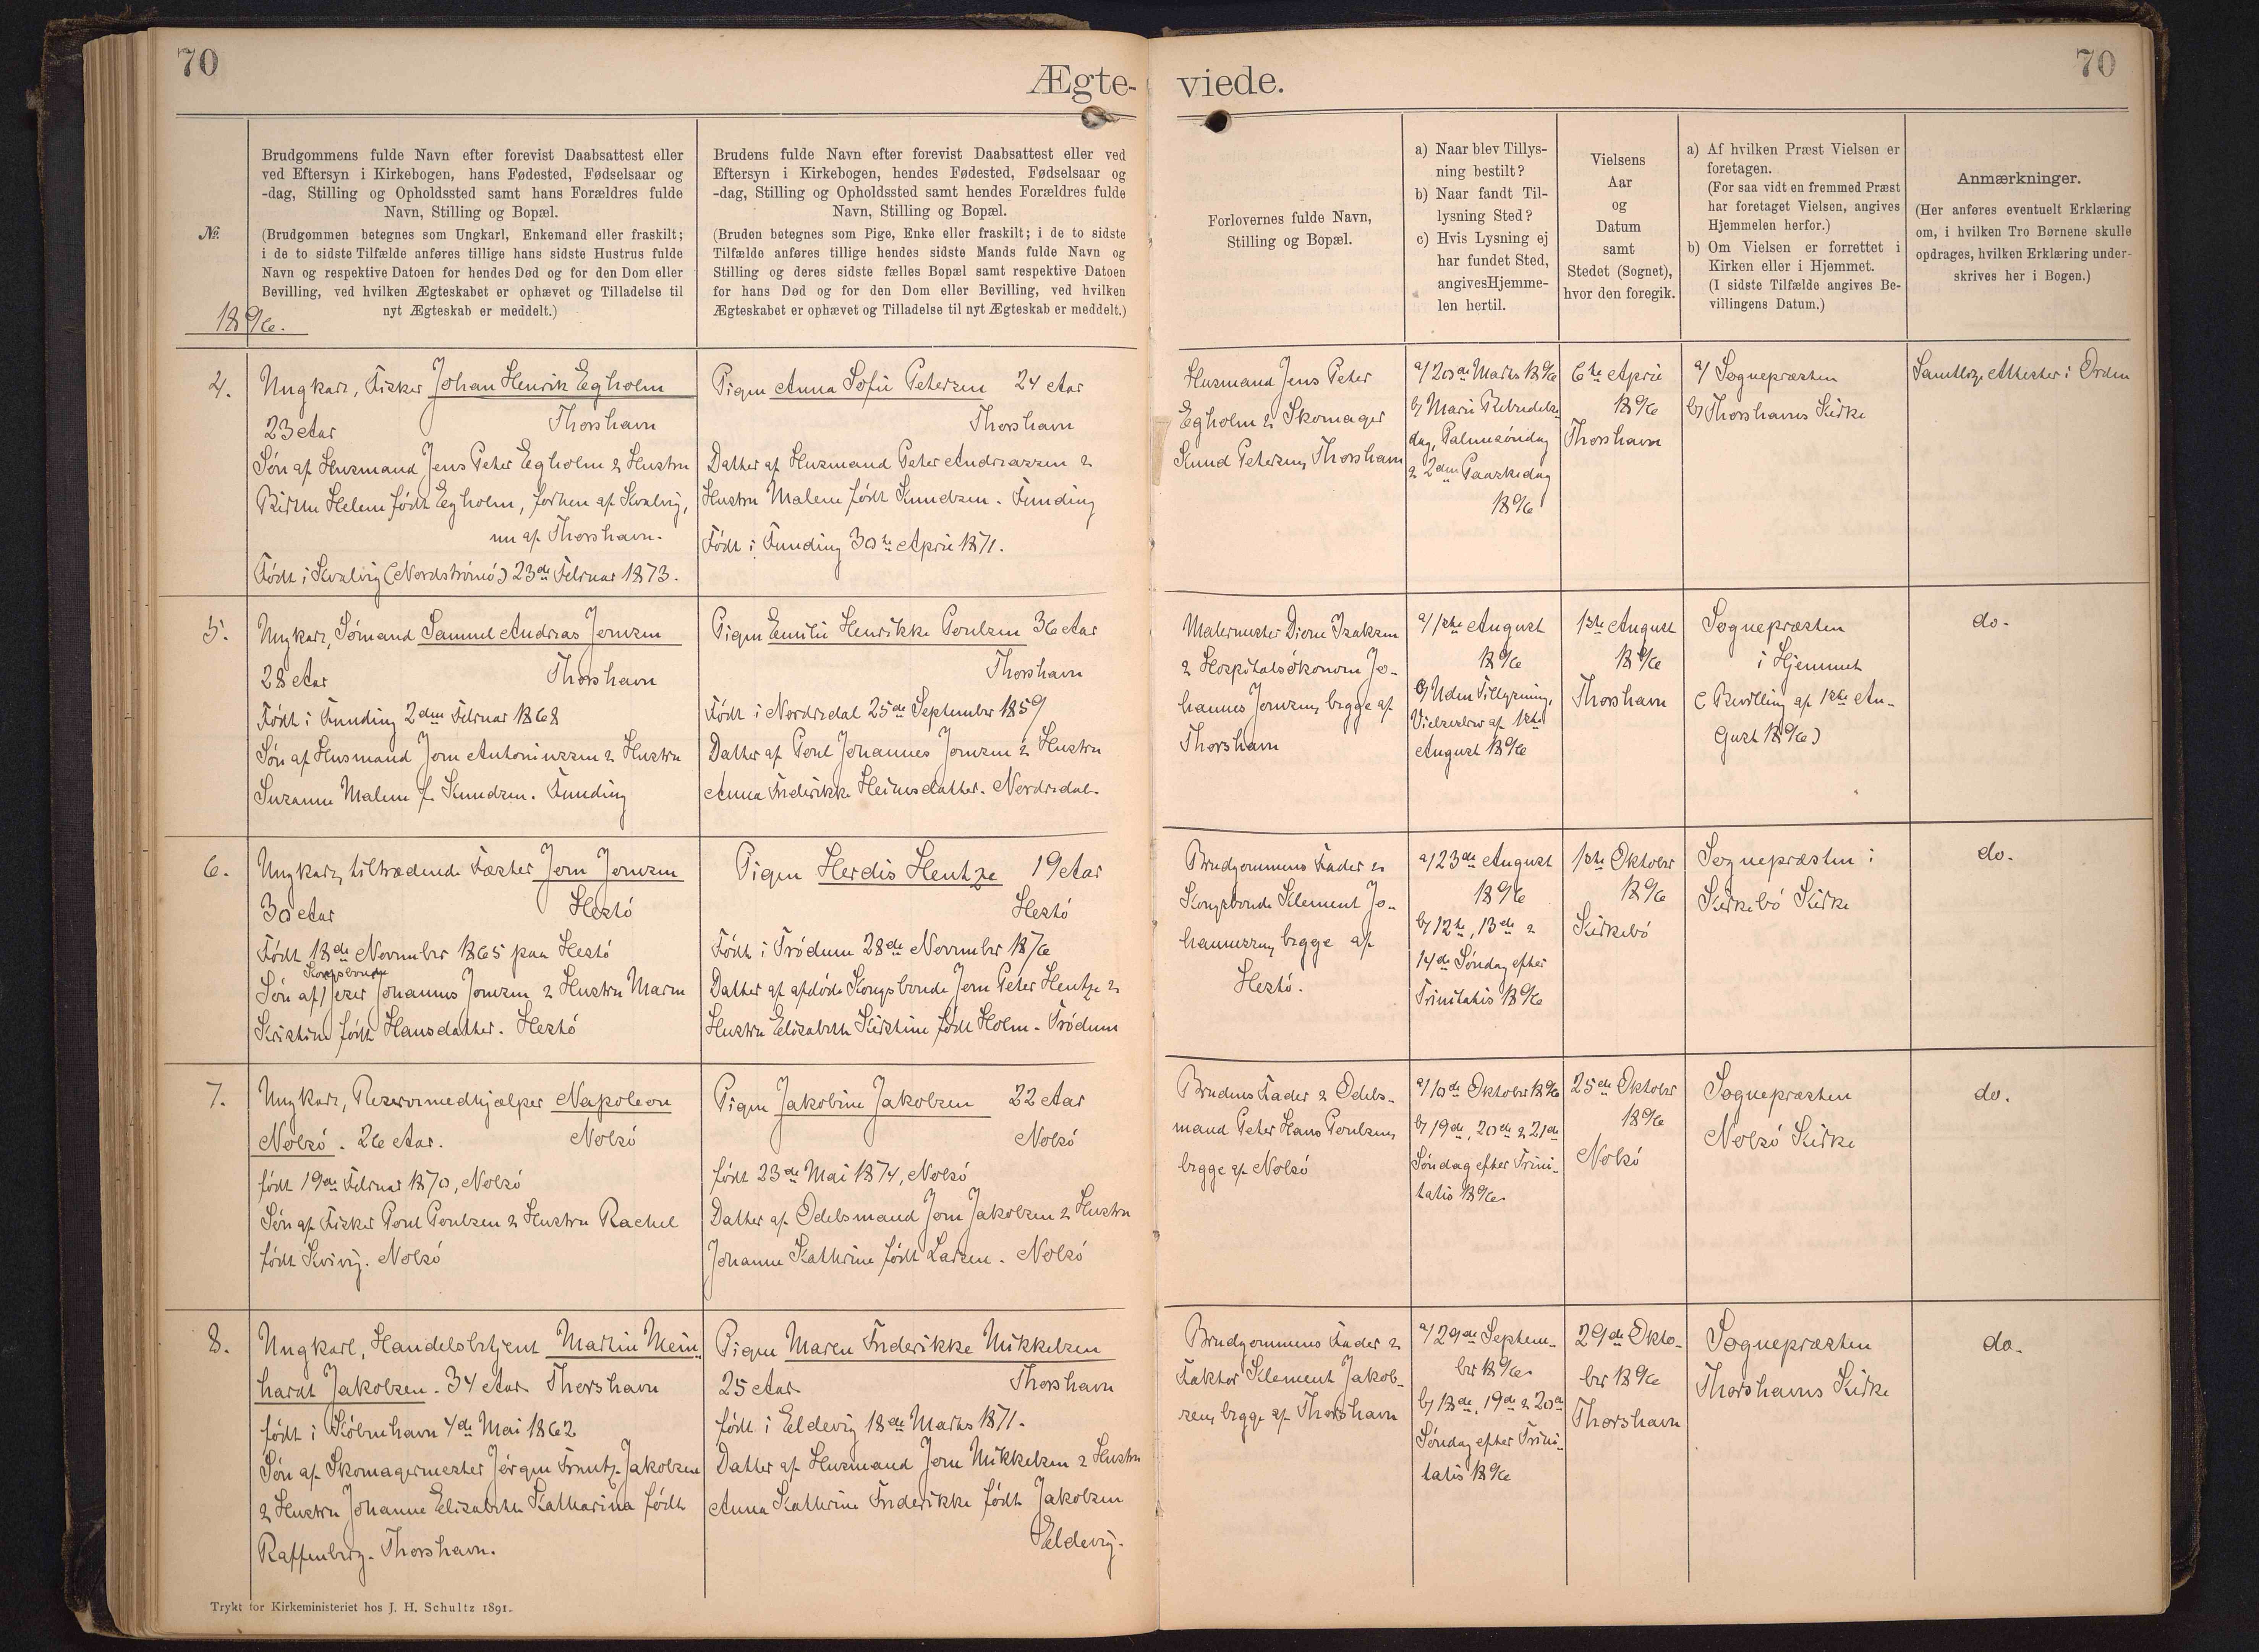 70
70
Ægte- viede.
№
1896.
Brudgommens fulde Navn efter forevist Daabsattest eller
ved Eftersyn i Kirkebogen, hans Fødested, Fødselsaar og
-dag, Stilling og Opholdssted samt hans Forældres fulde
Navn, Stilling og Bopæl.
(Brudgommen betegnes som Ungkarl, Enkemand eller fraskilt;
i de to sidste Tilfælde anføres tillige hans sidste Hustrus fulde
Navn og respektive Datoen for hendes Død og for den Dom eller
Bevilling, ved hvilken Ægteskabet er ophævet og Tilladelse til
nyt Ægteskab er meddelt.)
Brudens fulde Navn efter forevist Daabsattest eller ved
Eftersyn i Kirkebogen, hendes Fødested, Fødselsaar og
-dag, Stilling og Opholdssted samt hendes Forældres fulde
Navn, Stilling og Bopæl.
(Bruden betegnes som Pige, Enke eller fraskilt; i de to sidste
Tilfælde anføres tillige hendes sidste Mands fulde Navn og
Stilling og deres sidste fælles Bopæl samt respektive Datoen
for hans Død og for den Dom eller Bevilling, ved hvilken
Ægteskabet er ophævet og Tilladelse til nyt Ægteskab er meddelt.)
Forlovernes fulde Navn,
Stilling og Bopæl.
a) Naar blev Tillys-
ning bestilt?
b) Naar fandt Til-
lysning Sted?
c) Hvis Lysning ej
har fundet Sted,
angivesHjemme-
len hertil.
Vielsens
Aar
og
Datum
samt
Stedet (Sognet),
hvor den foregik.
a) Af hvilken Præst Vielsen er
foretagen.
(For saa vidt en fremmed Præst
har foretaget Vielsen, angives
Hjemmelen herfor.)
b) Om Vielsen er forrettet i
Kirken eller i Hjemmet.
(I sidste Tilfælde angives Be-
villingens Datum.)
Anmærkninger.
(Her anføres eventuelt Erklæring
om, i hvilken Tro Børnene skulle
opdrages, hvilken Erklæring under-
skrives her i Bogen.)
4.
Ungkarl, Fisker Johan Henrik Egholm
23 Aar Thorshavn
Søn af Husmand Jens Peter Egholm & Hustru
Birthe Helene født Egholm, forhen af Kvalvig,
nu af Thorshavn.
Født i Kvalvig (Nordstrømø) 23de Februar 1873.
Pigen Anna Sofie Petersen 24 Aar
Thorshavn
Datter af Husmand Peter Andreassen &
Hustru Malene født Knudsen. Funding
Født i Funding 30te April 1871.
Husmand Jens Peter
Egholm & Skomager
Knud Petersen, Thorshavn
a/ 20de Marts 1896
b/ Mariæ Bebudelses-
dag, Palmesøndag
& 2den Paaskedag
1896
6te April
1896
Thorshavn
a/ Sognepræsten
b/ Thorshavns Kirke
Samtlige Attester i Orden
5.
Ungkarl, Sømand Samuel Andreas Joensen
28 Aar Thorshavn
Født i Funding 2den Februar 1868
Søn af Husmand Joen Antoniussen & Hustru
Susanne Malene f. Knudsen. Funding
Pigen Emilie Henrikke Poulsen 36 Aar
Thorshavn
Født i Nordredal 25de September 1859
Datter af Poul Johannes Joensen & Hustru
Anna Frederikke Heinesdatter. Nordredal
Malermester Dione Isaksen
& Hospitalsøkonom Jo-
hannes Joensen, begge af
Thorshavn
a/ 1ste August
1896
c/ Uden Tillysning,
Vielsesbrev af 1ste
August 1896
1ste August
1896
Thorshavn
Sognepræsten
i Hjemmet
(Bevilling af 1ste Au-
gust 1896)
do.
6.
Ungkarl, tiltrædende Fæster Joen Joensen
30 Aar Hestø
Født 18de November 1865 paa Hestø
Kongsbonde
Søn af Jezer Johannes Joensen & Hustru Maren
Kristine født Hansdatter. Hestø
Pigen Herdis Hentze 19 Aar
Hestø
Født i Frødum 28de November 1876
Datter af afdøde Kongsbonde Joen Peter Hentze &
Hustru Elisabeth Kirstine født Holm. Frødum
Brudgommens Fader &
Kongsbonde Klement Jo-
hannessen, begge af
Hestø.
a/ 23de August
1896
b/ 12te, 13de &
14de Søndag efter
Trinitatis 1896
1ste Oktober
1896
Kirkebø
Sognepræsten i
Kirkebø Kirke
do.
7.
Ungkarl, Reservemedhjælper Napoleon
Nolsø. 26 Aar. Nolsø
født 19de Februar 1870, Nolsø
Søn af Fisker Poul Poulsen & Hustru Rachel
født Kvivig. Nolsø
Pigen Jakobine Jakobsen 22 Aar
Nolsø
født 23de Mai 1874, Nolsø
Datter af Odelsmand Joen Jakobsen & Hustru
Johanne Kathrine født Larsen. Nolsø
Brudens Fader & Odels-
mand Peter Hans Poulsen,
begge af Nolsø
a/ 10de Oktober 1896
b/ 19de, 20de & 21de
Søndag efter Trini-
tatis 1896.
25de Oktober
1896
Nolsø
Sognepræsten
Nolsø Kirke
do.
8.
Ungkarl, Handelsbetjent Martin Mein-
hardt Jakobsen. 34 Aar Thorshavn
født i Kiøbenhavn 4de Mai 1862
Søn af Skomagermester Jørgen Frantz Jakobsen
& Hustru Johanne Elisabeth Katharina født
Raffenberg. Thorshavn.
Pigen Maren Frederikke Mikkelsen
25 Aar Thorshavn
født i Eldevig 18de Marts 1871.
Datter af Husmand Joen Mikkelsen & Hustru
Anna Kathrine Frederikke født Jakobsen
Eldevig.
Brudgommens Fader &
Faktor Klement Jakob-
sen, begge af Thorshavn
a/ 29de Septem-
ber 1896.
b/ 18de, 19de & 20de
Søndag efter Trini-
tatis 1896
29de Okto-
ber 1896
Thorshavn
Sognepræsten
Thorshavns Kirke
do.
Trykt for Kirkeministeriet hos J. H. Schultz 1891.